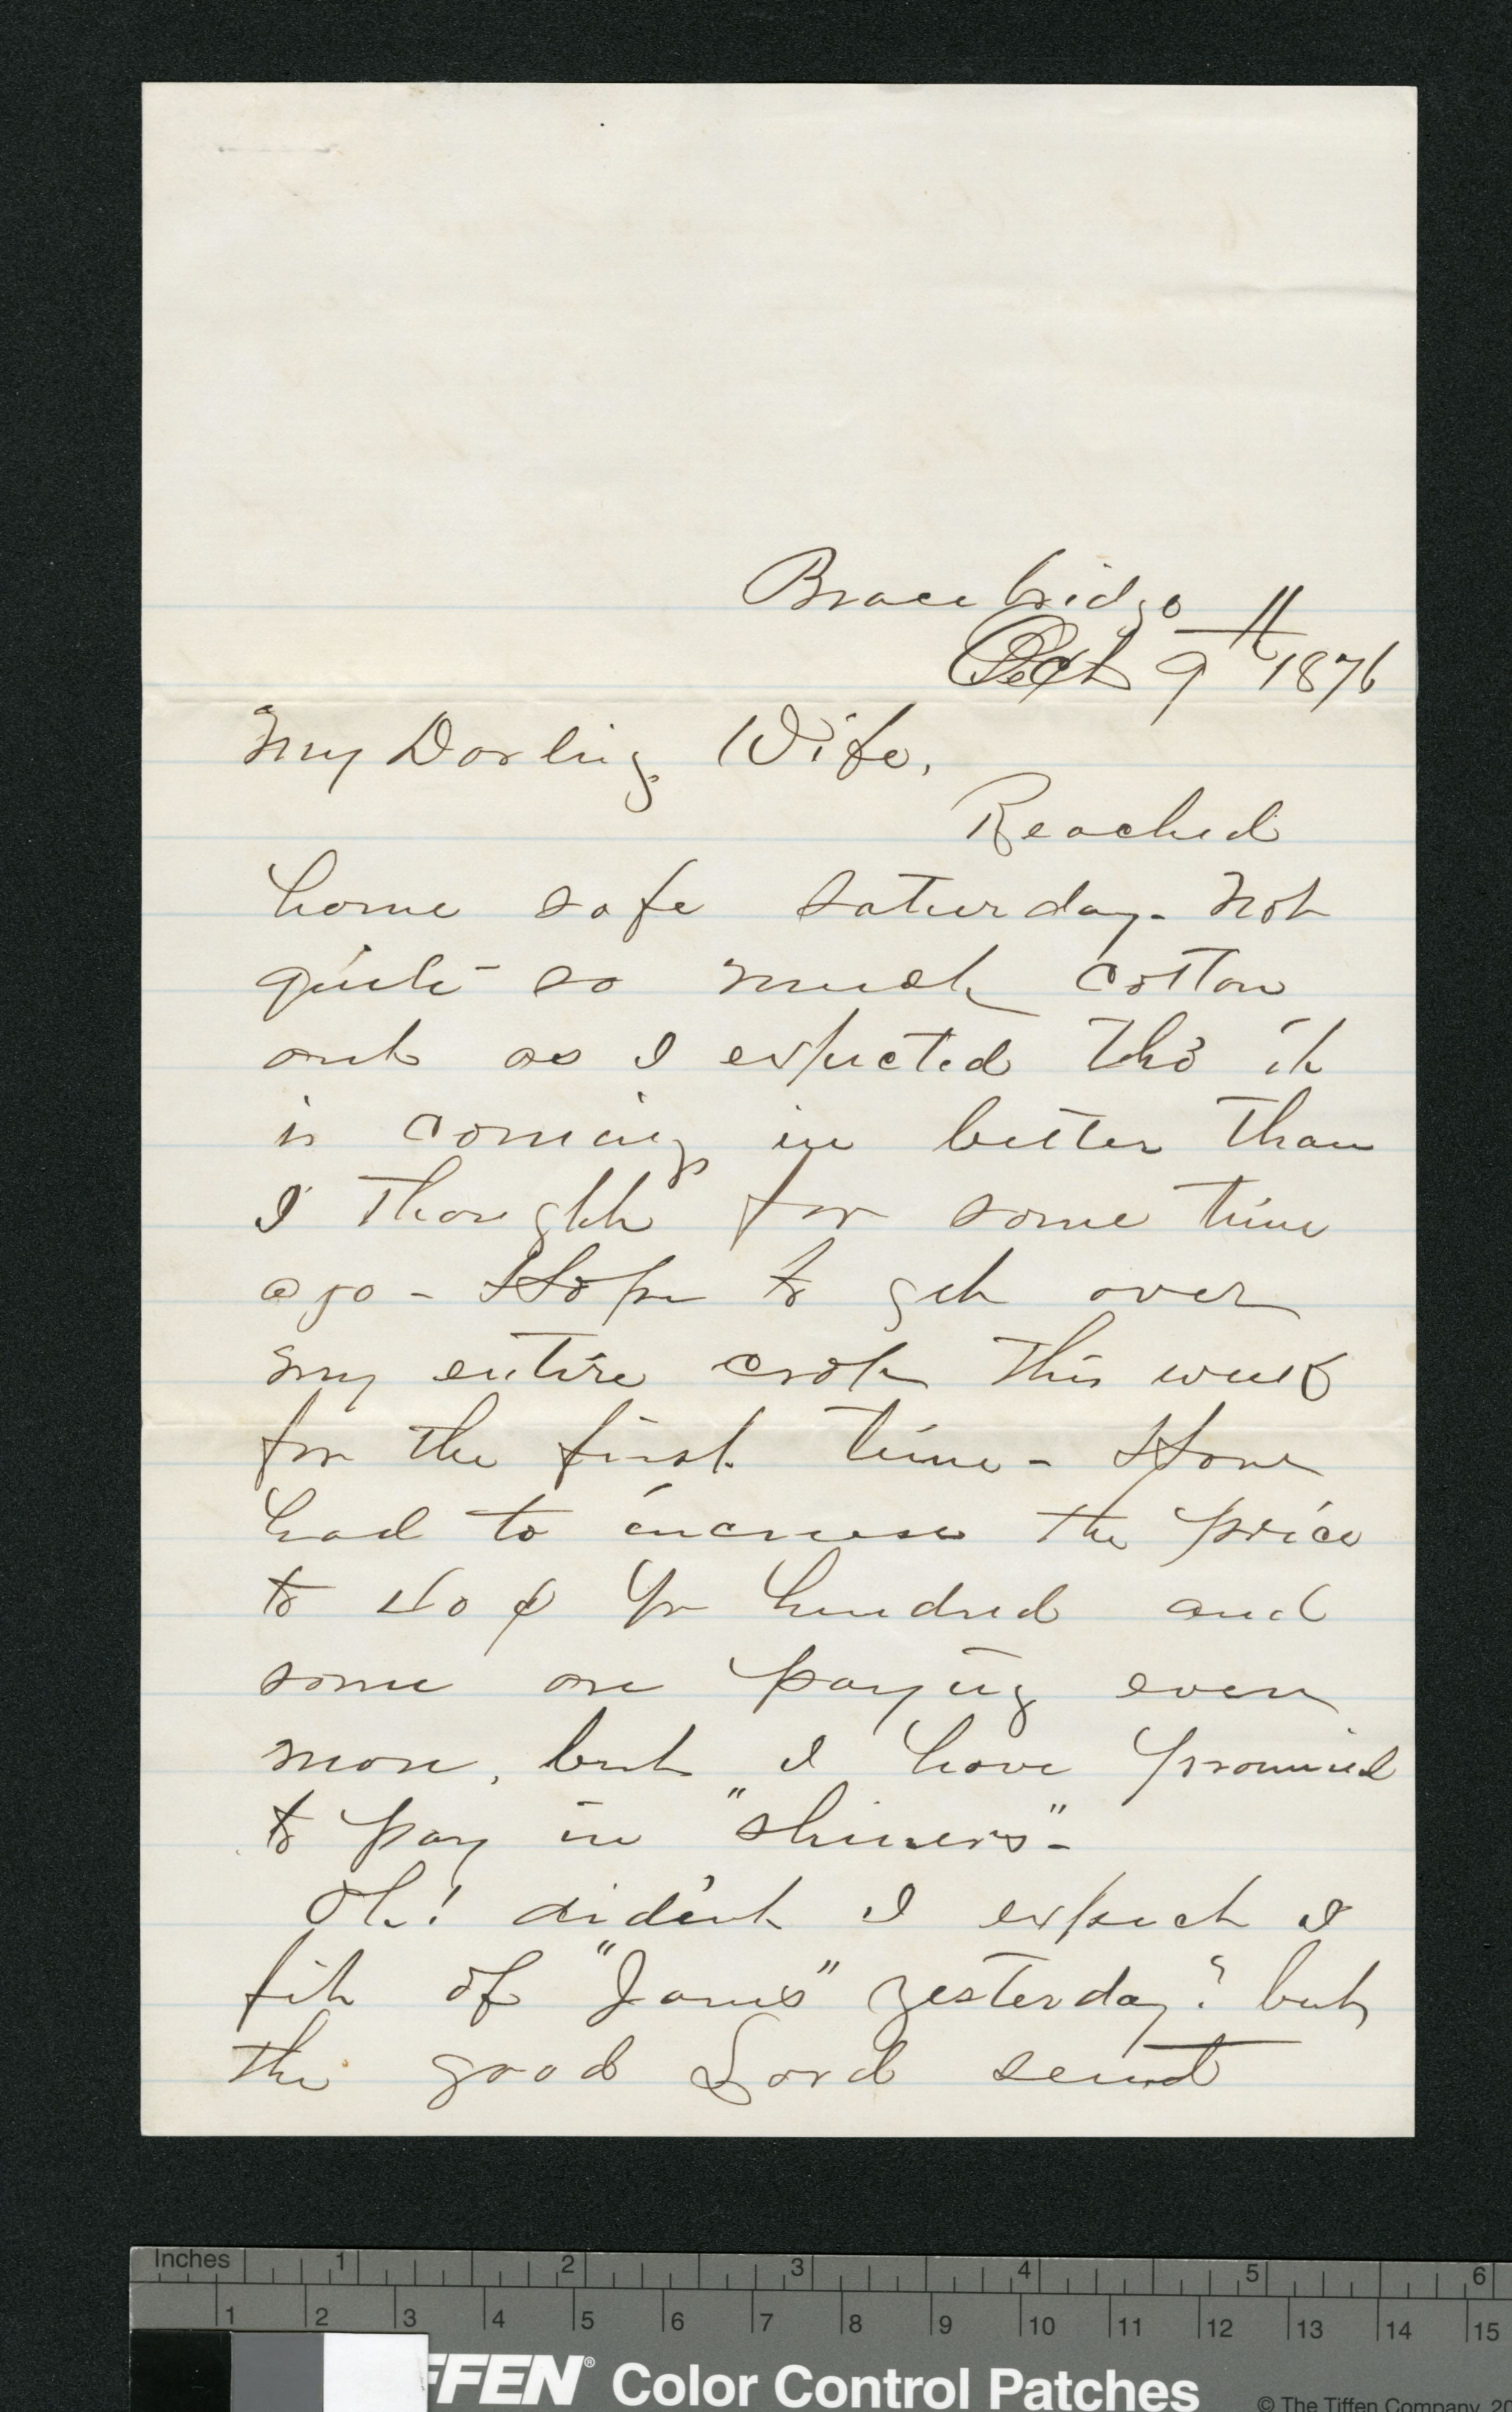 Bracebridge
Oct 9th 1876
My Darling Wife,
Reached
home safe Saturday - Not
quite so much cotton
out as I expected tho' it
is coming in better than
I thought for some time
ago - Hope to get over
my entire crop this week
for the first time - Have
had to increase the price
to 40¢ pr hundred and
some are paying even
more, but I have promised
to pay in "shiners" -
Oh! did'ent I expect a
fit of "Jam's" yesterday? but
the good Lord sent
Inches 1 2 3 4 5 6
1 2 3 4 5 6 7 8 9 10 11 12 13 14 15
FFEN® Color Control Patches
© The Tiffen Company, 20